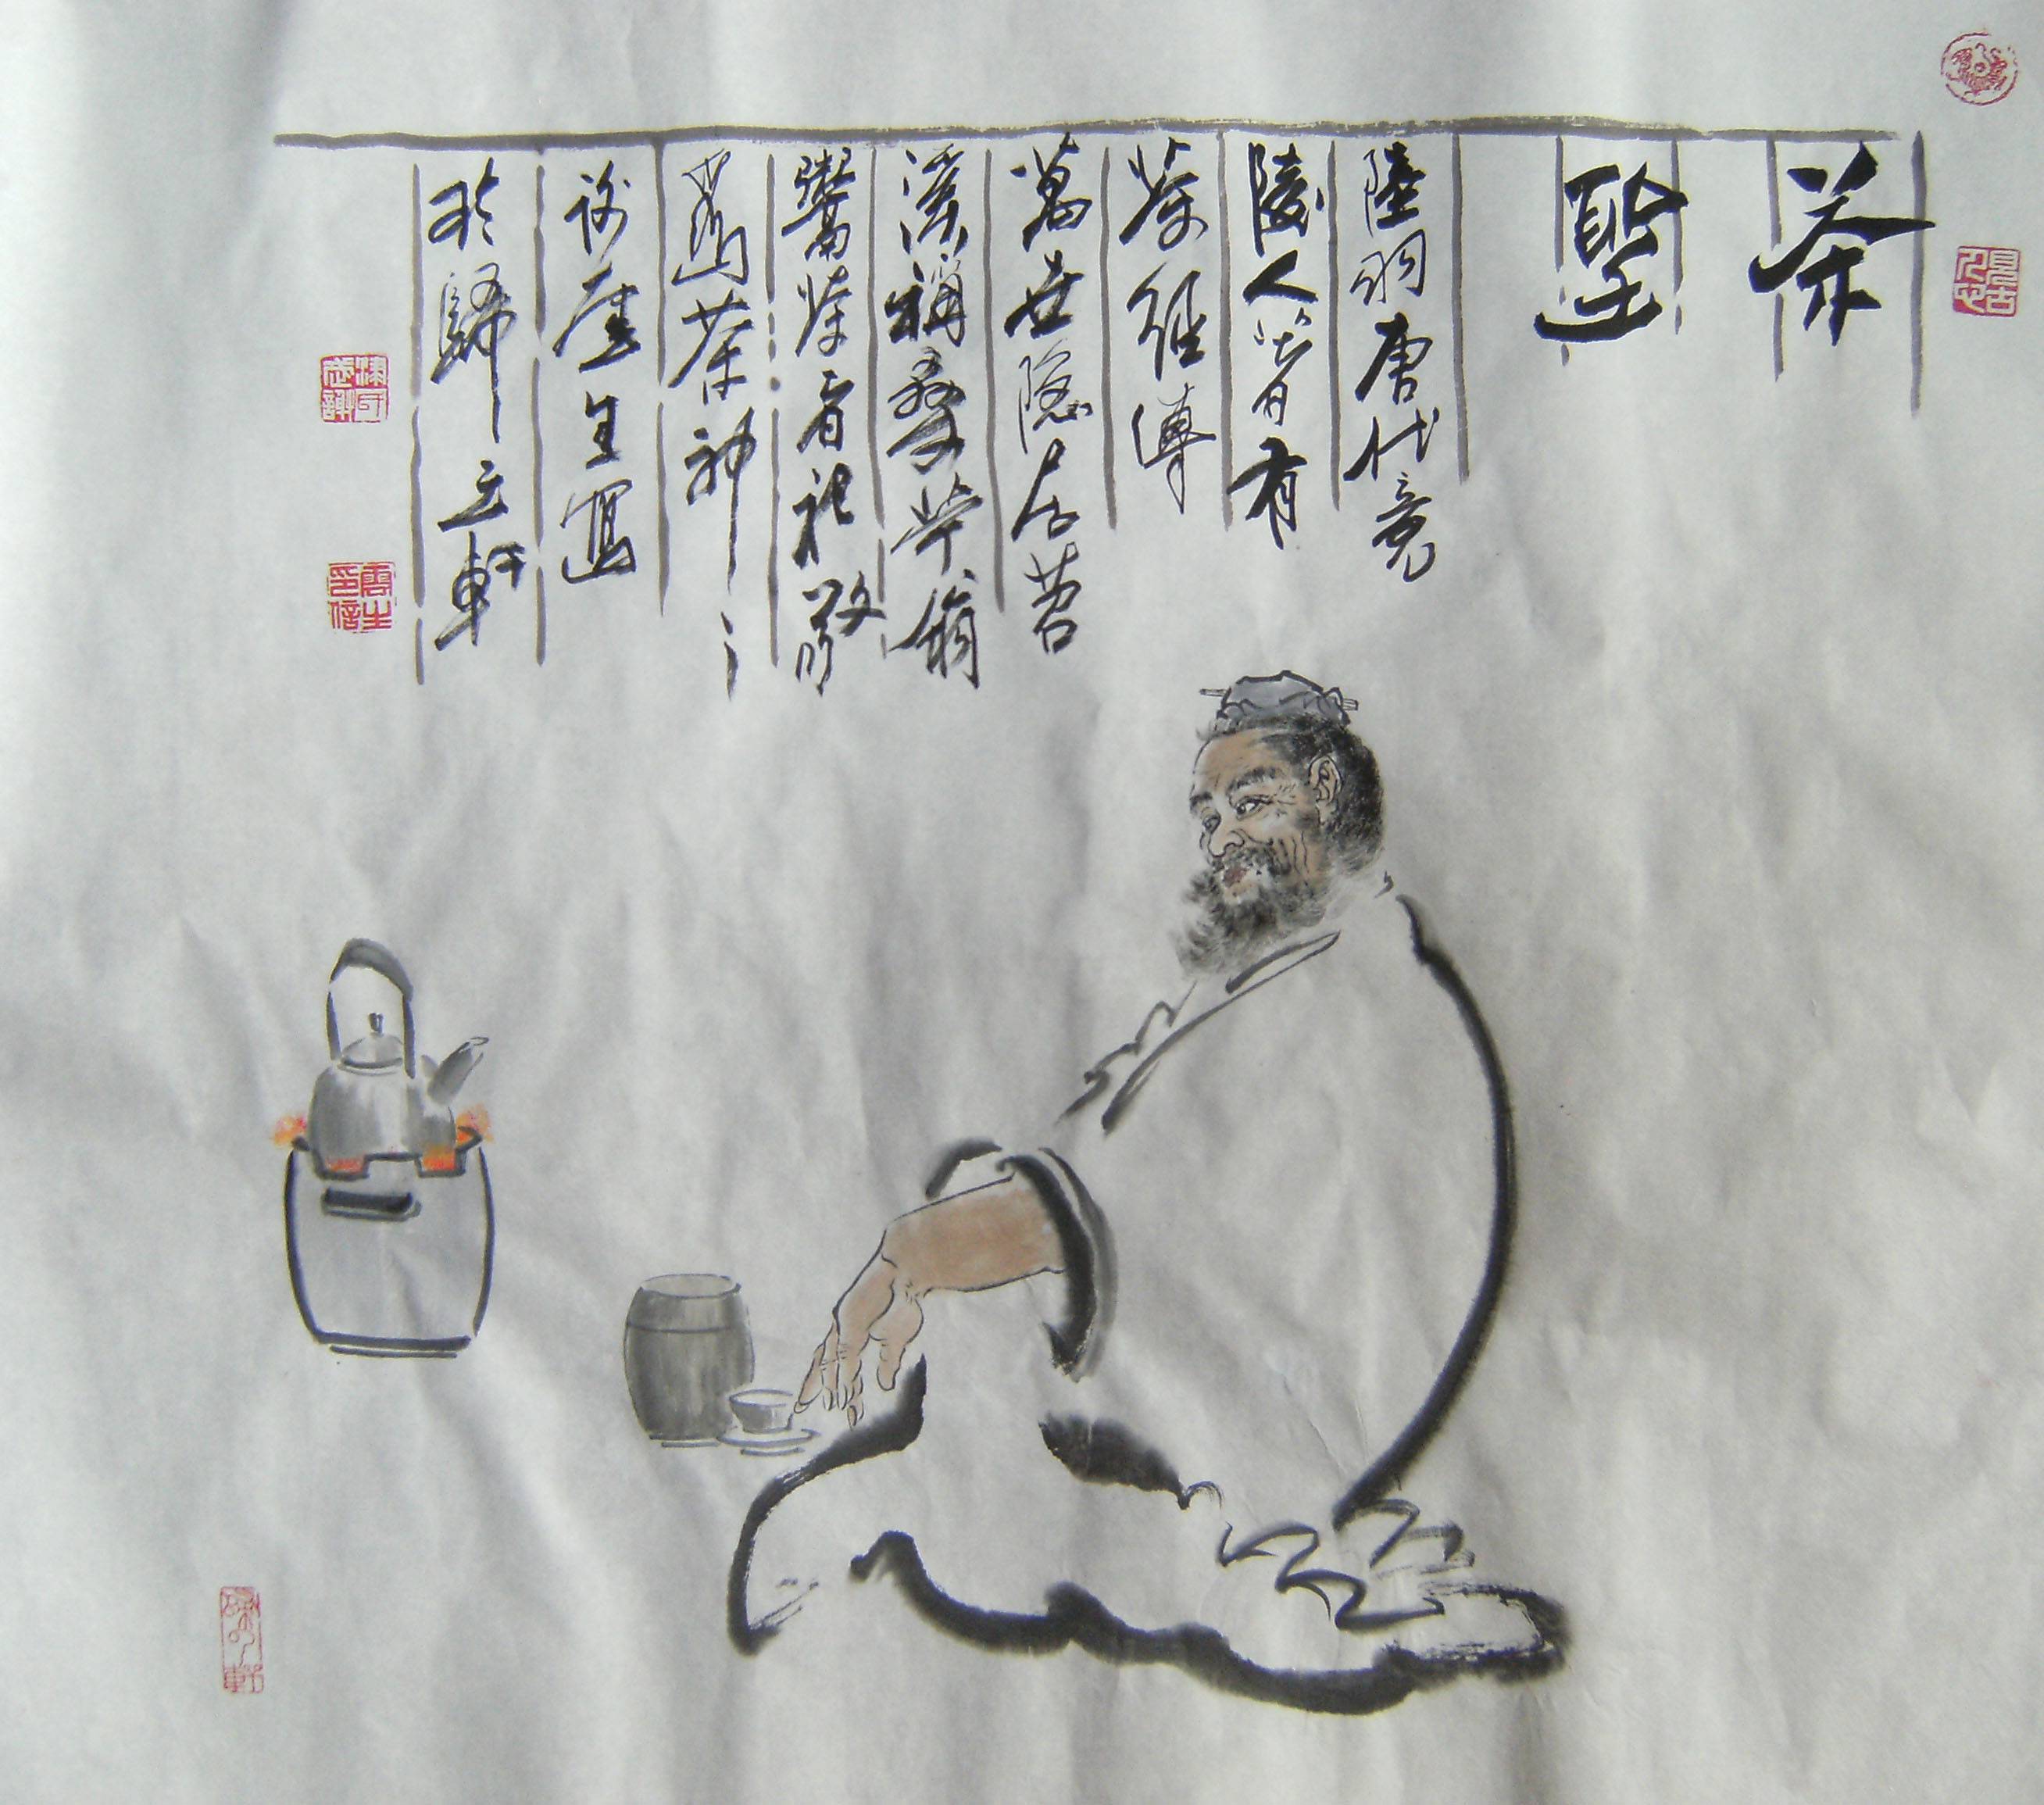 茶
聖
陸羽唐代竟
陵人著有
茶經傳
萬世隱居苕
溪稱桑苧翁
鬻茶者祀敬
茶神
生寫
於歸云軒
雲生印信